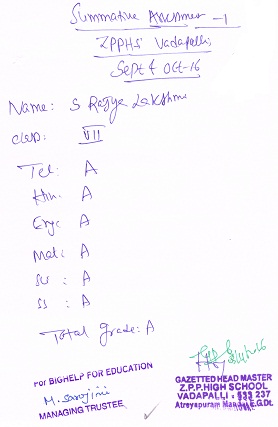 Summative Assessment - 1
ZPPHS Vadapalli,
Sept & Oct-16
Name: S Rajya Lakshmi
class: VII
Tel: A
Hin: A
Eng: A
Mat: A
SS : A
Total grade: A
For BIGHELP FOR EDUCATION
M. Sarojini
MANAGING TRUSTEE
GAZETTED HEAD MASTER
Z.P.P.HIGH SCHOOL
VADAPALLI - 533 237
Atreyapuram Mandal, E.G.Dt.